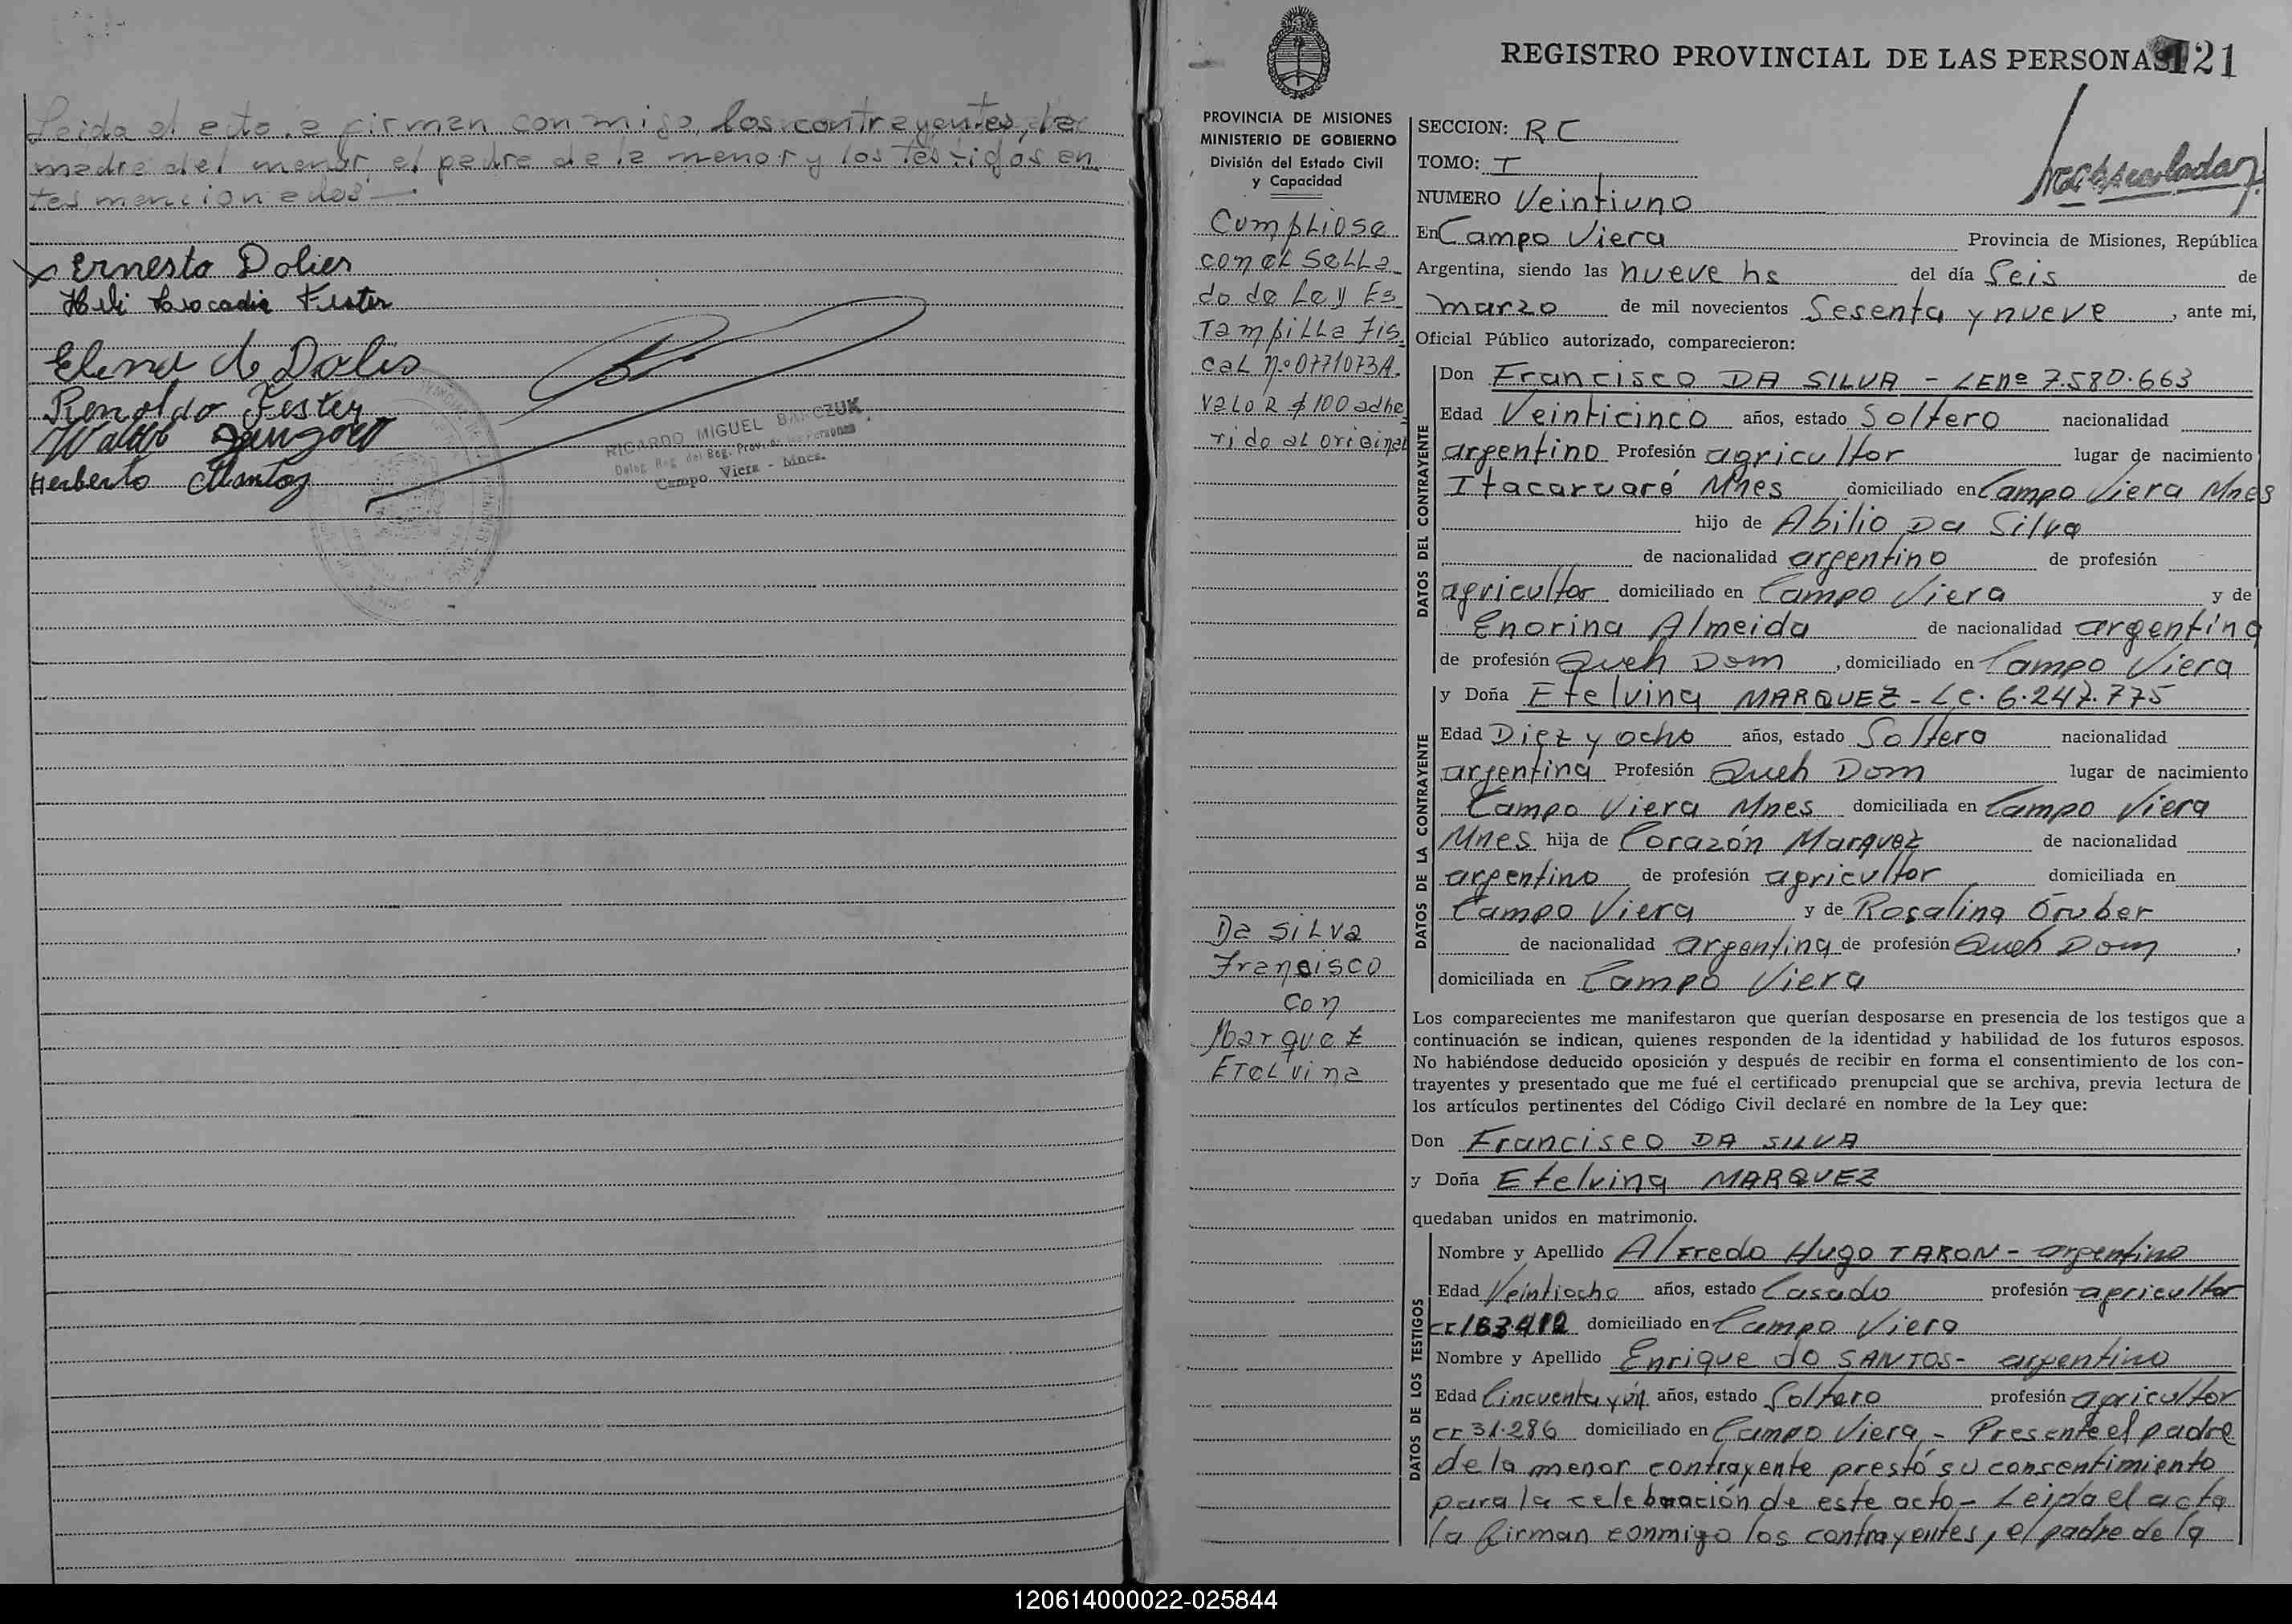 Leida el acta, la firman conmigo, los contrayentes, la
madre del menor, el padre de la menor y los testigos an
tes mencionados.—
Ernesto Dolier
Heli Leocadia Fester
Elena de Dolis
Renoldo Fester
Herberto
RICARDO MIGUEL BARCZUK
Deleg. Reg. del Reg. Prov. de las Personas
Campo Viera - Mnes.
REGISTRO PROVINCIAL DE LAS PERSONAS 121
PROVINCIA DE MISIONES
MINISTERIO DE GOBIERNO
División del Estado Civil
y Capacidad
Cumpliose
con el Sella
do de Ley Es
Tampilla Fis
cal nº 0771073A.
Valor $ 100 adhe
rido al original
Da Silva
Francisco
con
Marquez
Etelvina
SECCION: RC
TOMO: I
NUMERO Veintiuno
En Campo Viera Provincia de Misiones, República
Argentina, siendo las nueve hs del día Seis de
marzo de mil novecientos Sesenta y nueve, ante mi,
Oficial Público autorizado, comparecieron:
DATOS DEL CONTRAYENTE
Don Francisco DA SILVA - LEnº 7.580.663
Edad Veinticinco años, estado Soltero nacionalidad
argentino Profesión agricultor lugar de nacimiento
Itacaruaré Mnes domiciliado en Campo Viera Mnes
hijo de Abilio Da Silva
de nacionalidad argentino de profesión
agricultor domiciliado en Campo Viera y de
Enorina Almeida de nacionalidad argentina
de profesión Queh Dom, domiciliado en Campo Viera
DATOS DE LA CONTRAYENTE
y Doña Etelvina MARQUEZ - LC. 6.247.775
Edad Diez y ocho años, estado Soltera nacionalidad
argentina Profesión Queh Dom lugar de nacimiento
Campo Viera Mnes domiciliada en Campo Viera
Mnes hija de Corazón Marquez de nacionalidad
argentino de profesión agricultor domiciliada en
Campo Viera y de Rosalina Gruber
de nacionalidad argentina de profesión Queh Dom,
domiciliada en Campo Viera
Los comparecientes me manifestaron que querían desposarse en presencia de los testigos que a
continuación se indican, quienes responden de la identidad y habilidad de los futuros esposos.
No habiéndose deducido oposición y después de recibir en forma el consentimiento de los con-
trayentes y presentado que me fué el certificado prenupcial que se archiva, previa lectura de
los artículos pertinentes del Código Civil declaré en nombre de la Ley que:
Don Francisco DA SILVA
y Doña Etelvina MARQUEZ
quedaban unidos en matrimonio.
DATOS DE LOS TESTIGOS
Nombre y Apellido Alfredo Hugo TARON - argentino
Edad Veintiocho años, estado Casado profesión agricultor
CI 163.412 domiciliado en Campo Viera
Nombre y Apellido Enrique do SANTOS - argentino
Edad Cincuenta y ún años, estado Soltero profesión agricultor
CI 31.286 domiciliado en Campo Viera - Presente el padre
de la menor contrayente prestó su consentimiento
para la celebración de este acto - Leida el acta
la firman conmigo los contrayentes, el padre de la
120614000022-025844